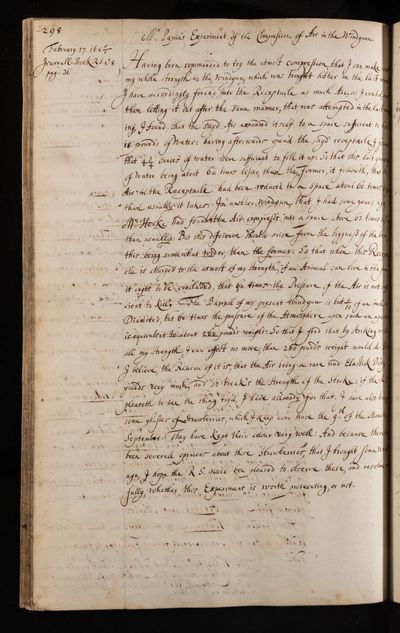 298
Mr. Papin's Experiment of the Compression of Air in the Windgun
February. 17. 168
Journall-Book R.S.
pag. 26.
Having been commanded to try the utmost compression that I can make
my whole strength in the Windgun, which was brought hither in the last
I have accordingly forced into the Receptacle as much Air as I could
then letting it out after the same manner, that was attempted in the last
ing, I found, that the sayd Air expanded itself to a space sufficient to
15 pounds of Water: having afterwards open'd the sayd receptacle I
that ounces of water were sufficient to fill it up: So that this last
of Water being about 60 times lesser, than the former, it followeth, that
Air in the Receptacle had been reduced to a space about 60 times
than usually it takes. In another Windgun, that I had some years ago
Mr. Hook had found the Air comprest into a space above 60 times
than usually: But the difference should arise from the bigness of the
this being somewhat wider, than the former: So that when this
cle is charged to the utmost of my strength, if an Animal can live in the
it ought to be concluded, that 60 times the Pressure of the Air is not
cient to kill. The Barrell of my present Windgun is but of an inch
Diameter, but 60 times the pressure of the Atmosphere upon such an
is equivalent to about pounds weight: So that I find that by striking
all my strength, I can effect no more, than 260 pounds weight would do
I believe, the Reason of it is, that the Air being a rare and Elastick
yields very much, and so breaks the Strength of the Stroke: if the
pleaseth to see the thing tryed, I have already for that. I have also
some glasses of Strawberries, which I keep ever since the 9th of the Month
September. They have kept their colour very well: And because there
been severall opinions about these Strawberries, that I brought some
ago, I hope the R.S. will be pleased to observe these, and resolve
fully, whether this Experiment is worth prosecuting, or not.